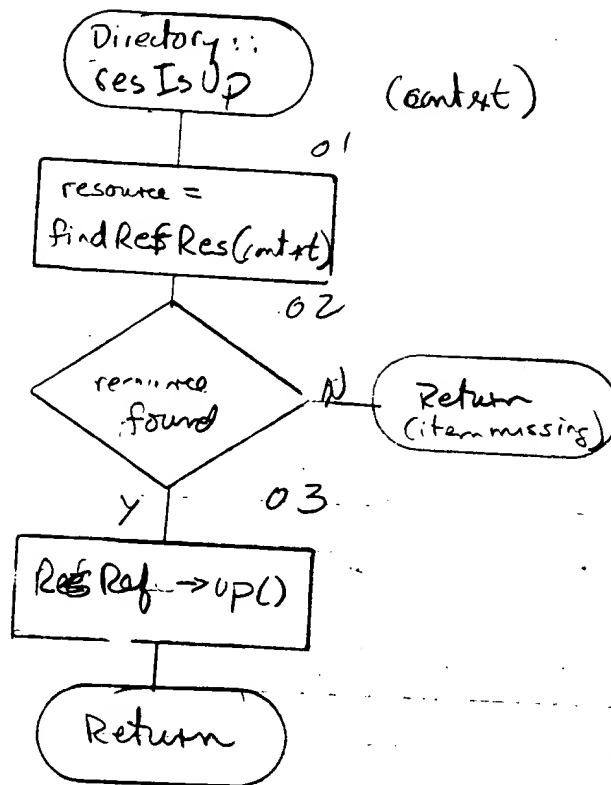 Directory::
resIsUp
(context)
01
resource =
findRefRes(context)
02
resource
found
N
Return
(item missing)
Y
03
ResRef → up()
Return